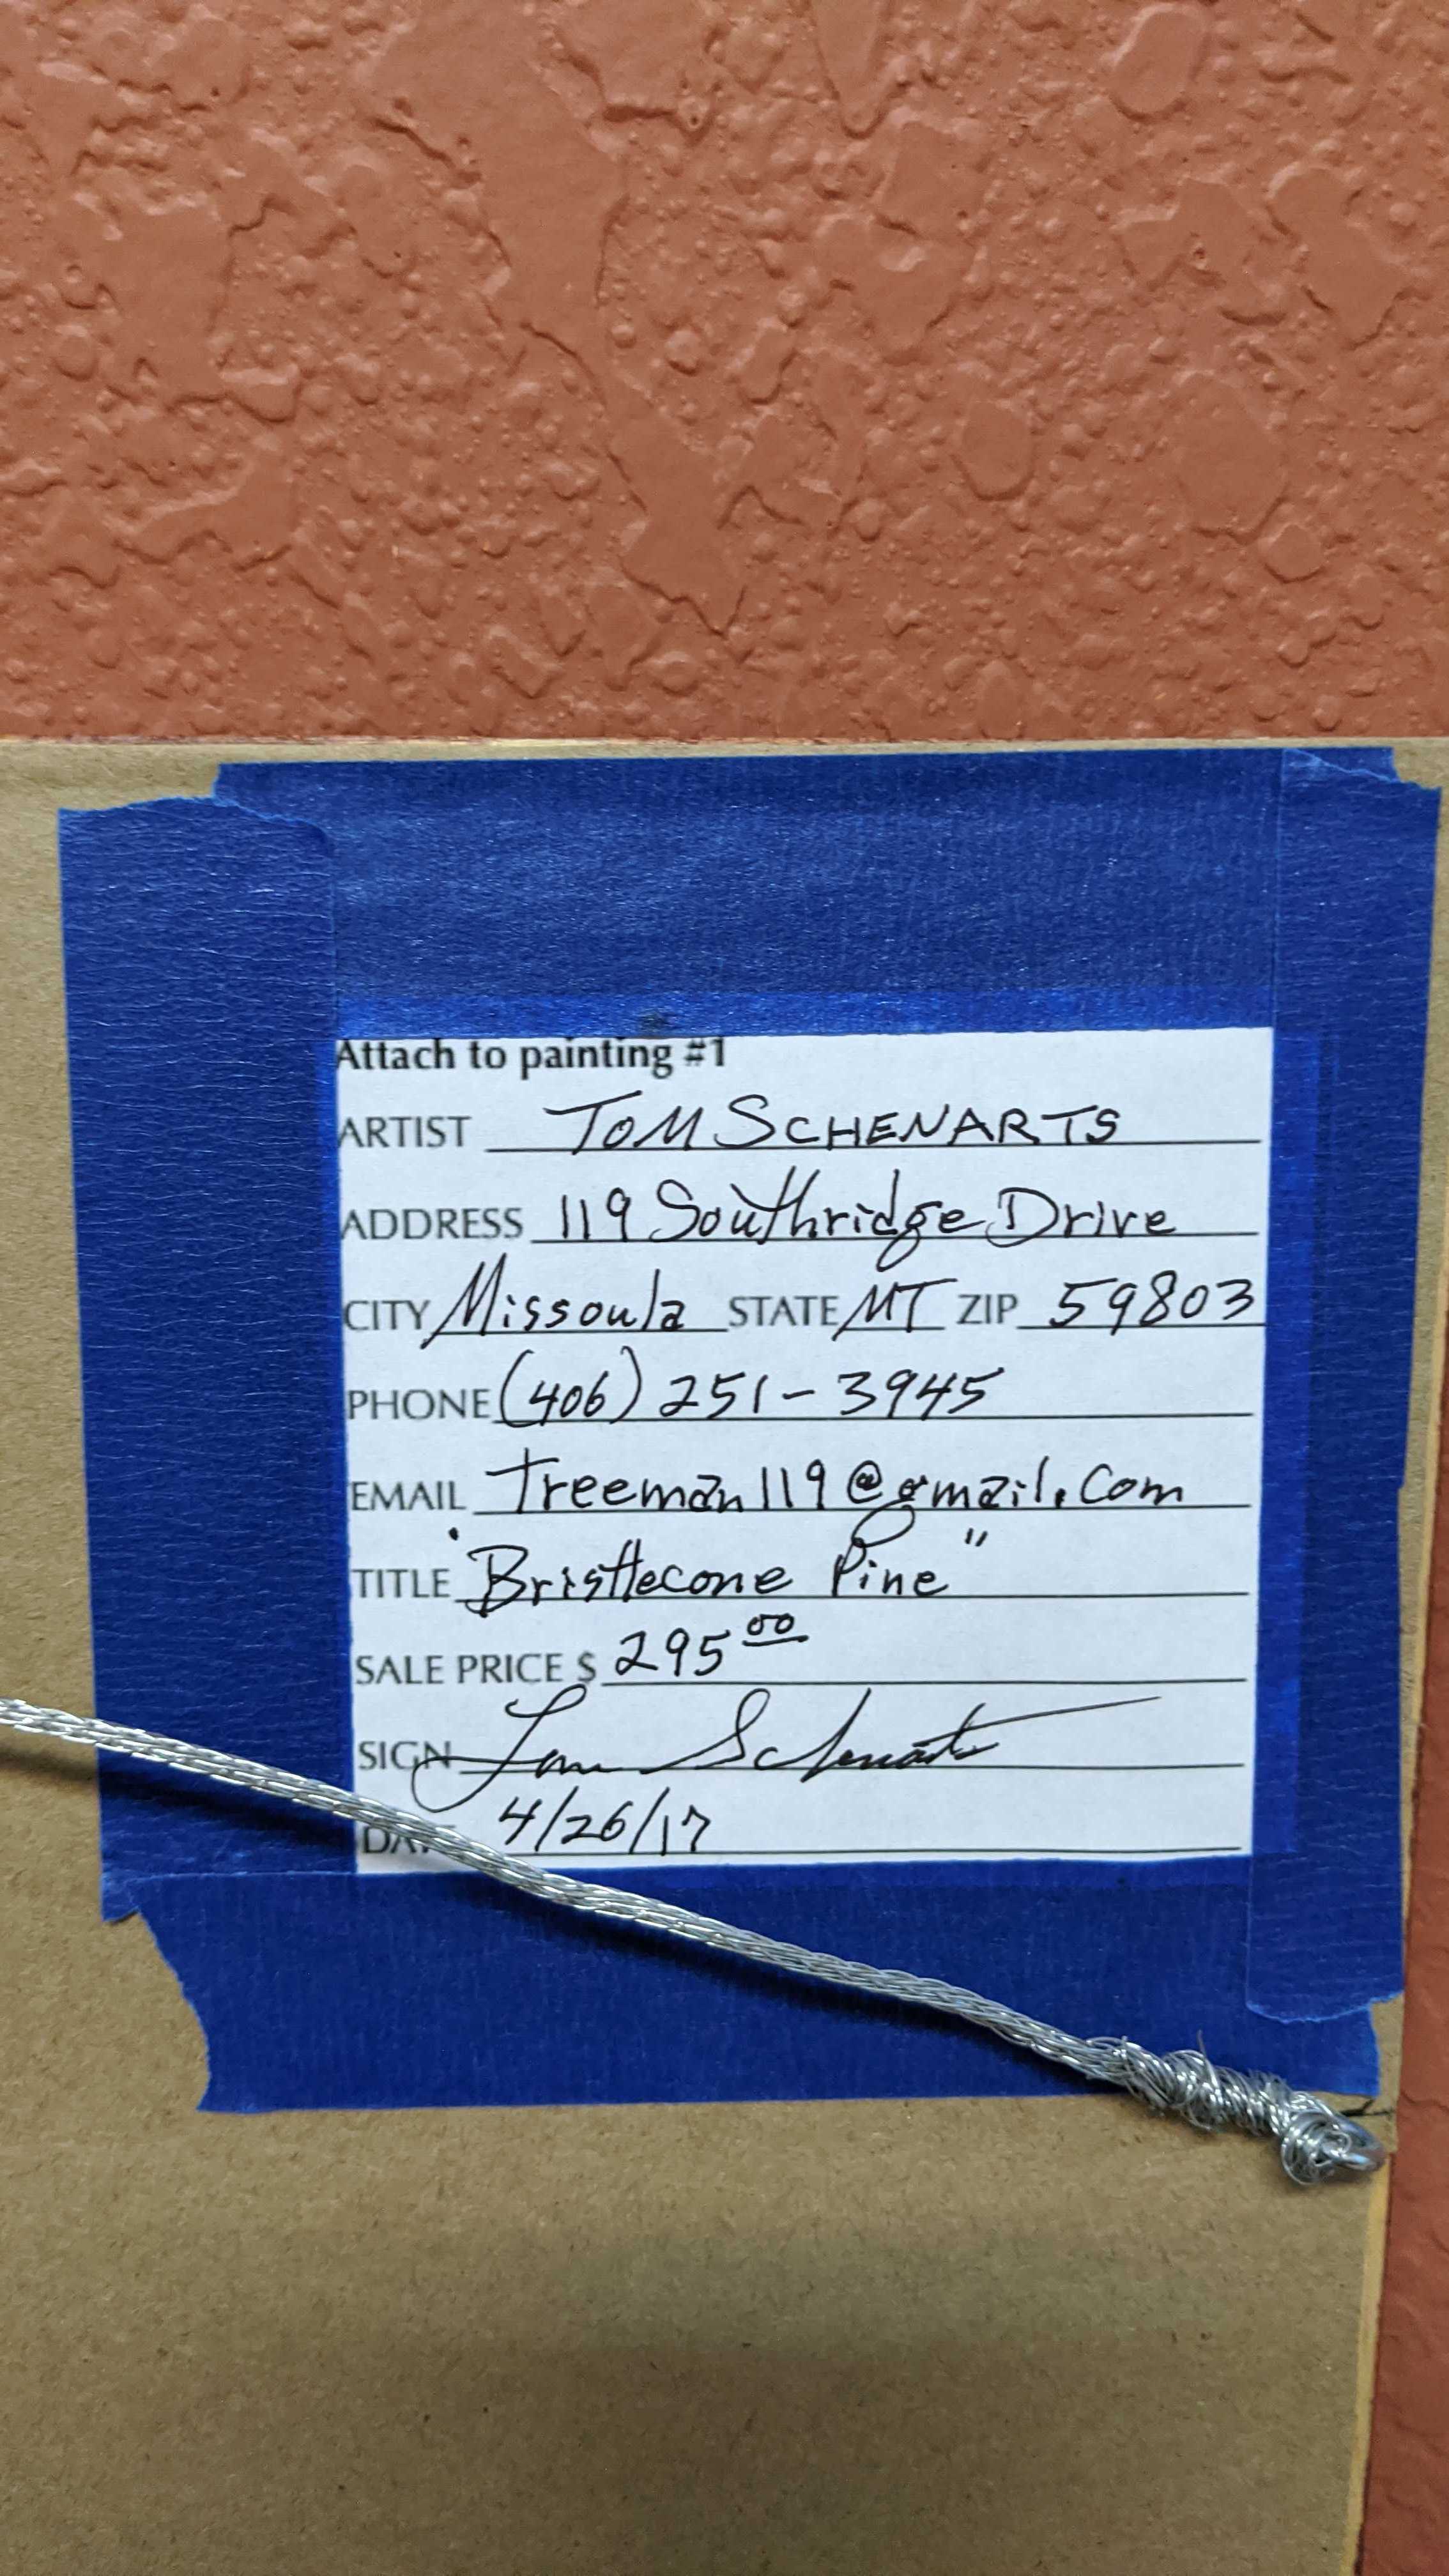 Attach to painting #1
ARTIST TOM SCHENARTS
ADDRESS 119 Southridge Drive
CITY Missoula STATE MT ZIP 59803
PHONE (406) 251-3945
EMAIL treeman119@gmail.com
TITLE "Bristlecone Pine"
SALE PRICE $ 295.00
SIGN Tom Schenarts
DATE 4/26/17